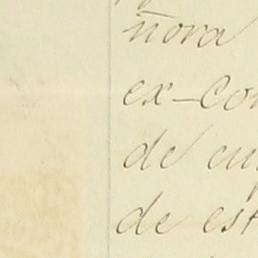 ñora
ex-Con
de cu
de est